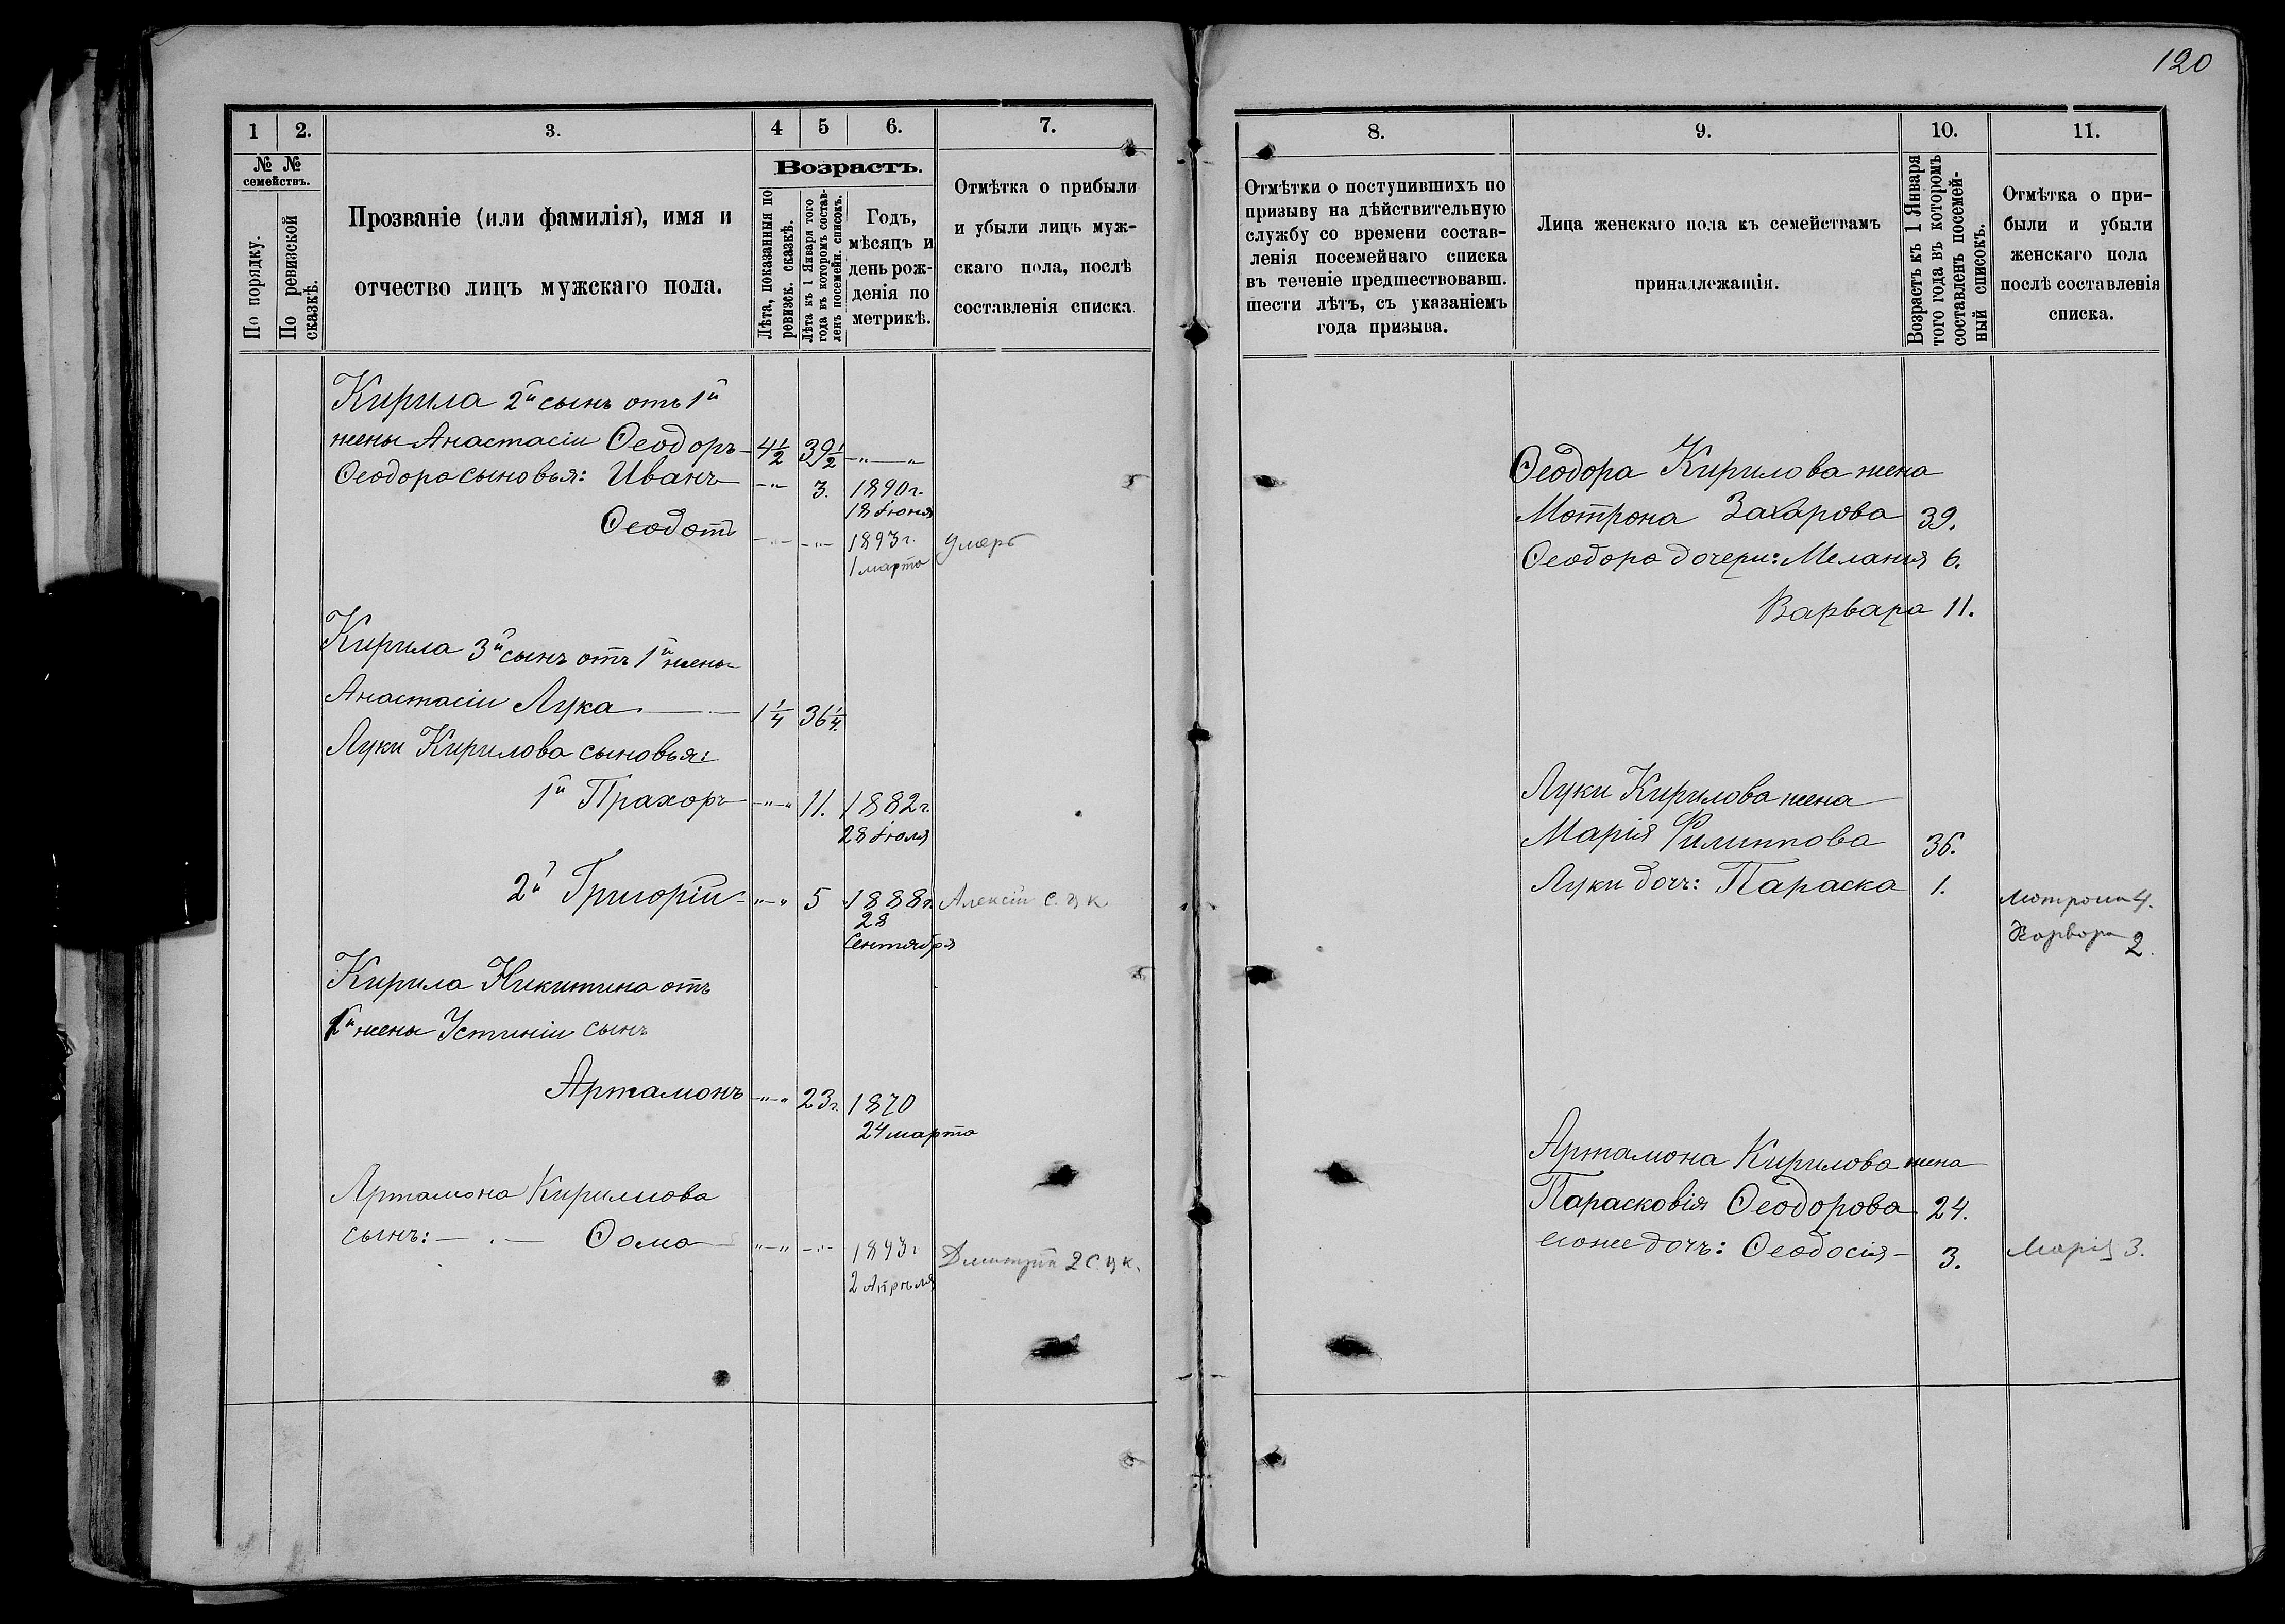 120
1
2.
3.
4
5
6.
7.
№ №
семействъ.
По порядку.
По ревизской
сказкѣ.
Прозваніе (или фамилія), имя и
отчество лицъ мужскаго пола.
Возрастъ.
Лѣта, показанныя по
ревизск. сказкѣ.
Лѣта къ 1 Января того
года въ которомъ состав-
ленъ посемейн. списокъ.
Годъ,
мѣсяцъ и
день рож-
денія по
метрикѣ.
Отмѣтка о прибыли
и убыли лицъ муж-
скаго пола, послѣ
составленія списка.
Кирила 2й сынъ отъ 1й
жены Анастасіи Ѳеодоръ - 4½ 39½ -"-"
Ѳеодора сыновья: Иванъ -"- 3. 1890 г.
18 Іюня
Ѳеодотъ -"- -"- 1893 г. умеръ
1 марта
Кирила 3й сынъ отъ 1й жены
Анастасіи Лука. 1¼ 36¼.
Луки Кирилова сыновья:
1й Прахоръ -"-" 11. 1882 г.
28 Іюля
2й Григорій -"-" 5 1888 г. Алексій с. ц к
28
Сентября
Кирила Никитина отъ
2й жены Устиніи сынъ
Артамонъ -"-" 23 г. 1870
24 марта
Артамона Кирилова
сынъ: Ѳома "-" -"- 1893 г. Дмитрій 2 с. ц к.
2 Апрѣля
8.
9.
10.
11.
Отмѣтки о поступившихъ по
призыву на дѣйствительную
службу со времени состав-
ленія посемейнаго списка
въ теченіе предшествовавш.
шести лѣтъ, съ указаніемъ
года призыва.
Лица женскаго пола къ семействамъ
принадлежащія.
Возрастъ къ 1 Января
того года въ которомъ
составленъ посемей-
ный списокъ.
Отмѣтка о при-
были и убыли
женскаго пола
послѣ составленія
списка.
Ѳеодора Кирилова жена
Мотрона Захарова 39.
Ѳеодора дочери: Меланія 6.
Варвара 11.
Луки Кирилова жена
Марія Филиппова 36.
Луки доч: Параска 1. Мотрона 4.
Варвара 2.
Артамона Кирилова жена
Парасковія Ѳеодорова 24.
его же дочъ: Ѳеодосія - 3. Марія 3.